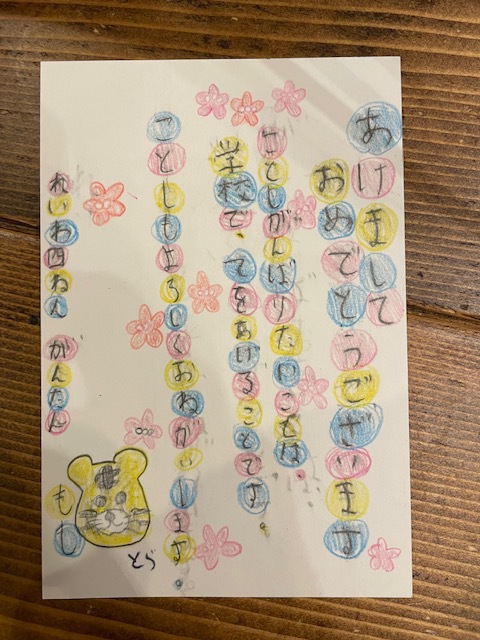 あけまして
おめでとうございます
ことしがんばりたいことは
学校で、てをあげることです。
ことしもよろしくおねがいします。
れいわ四ねん がんたん
もし
とら